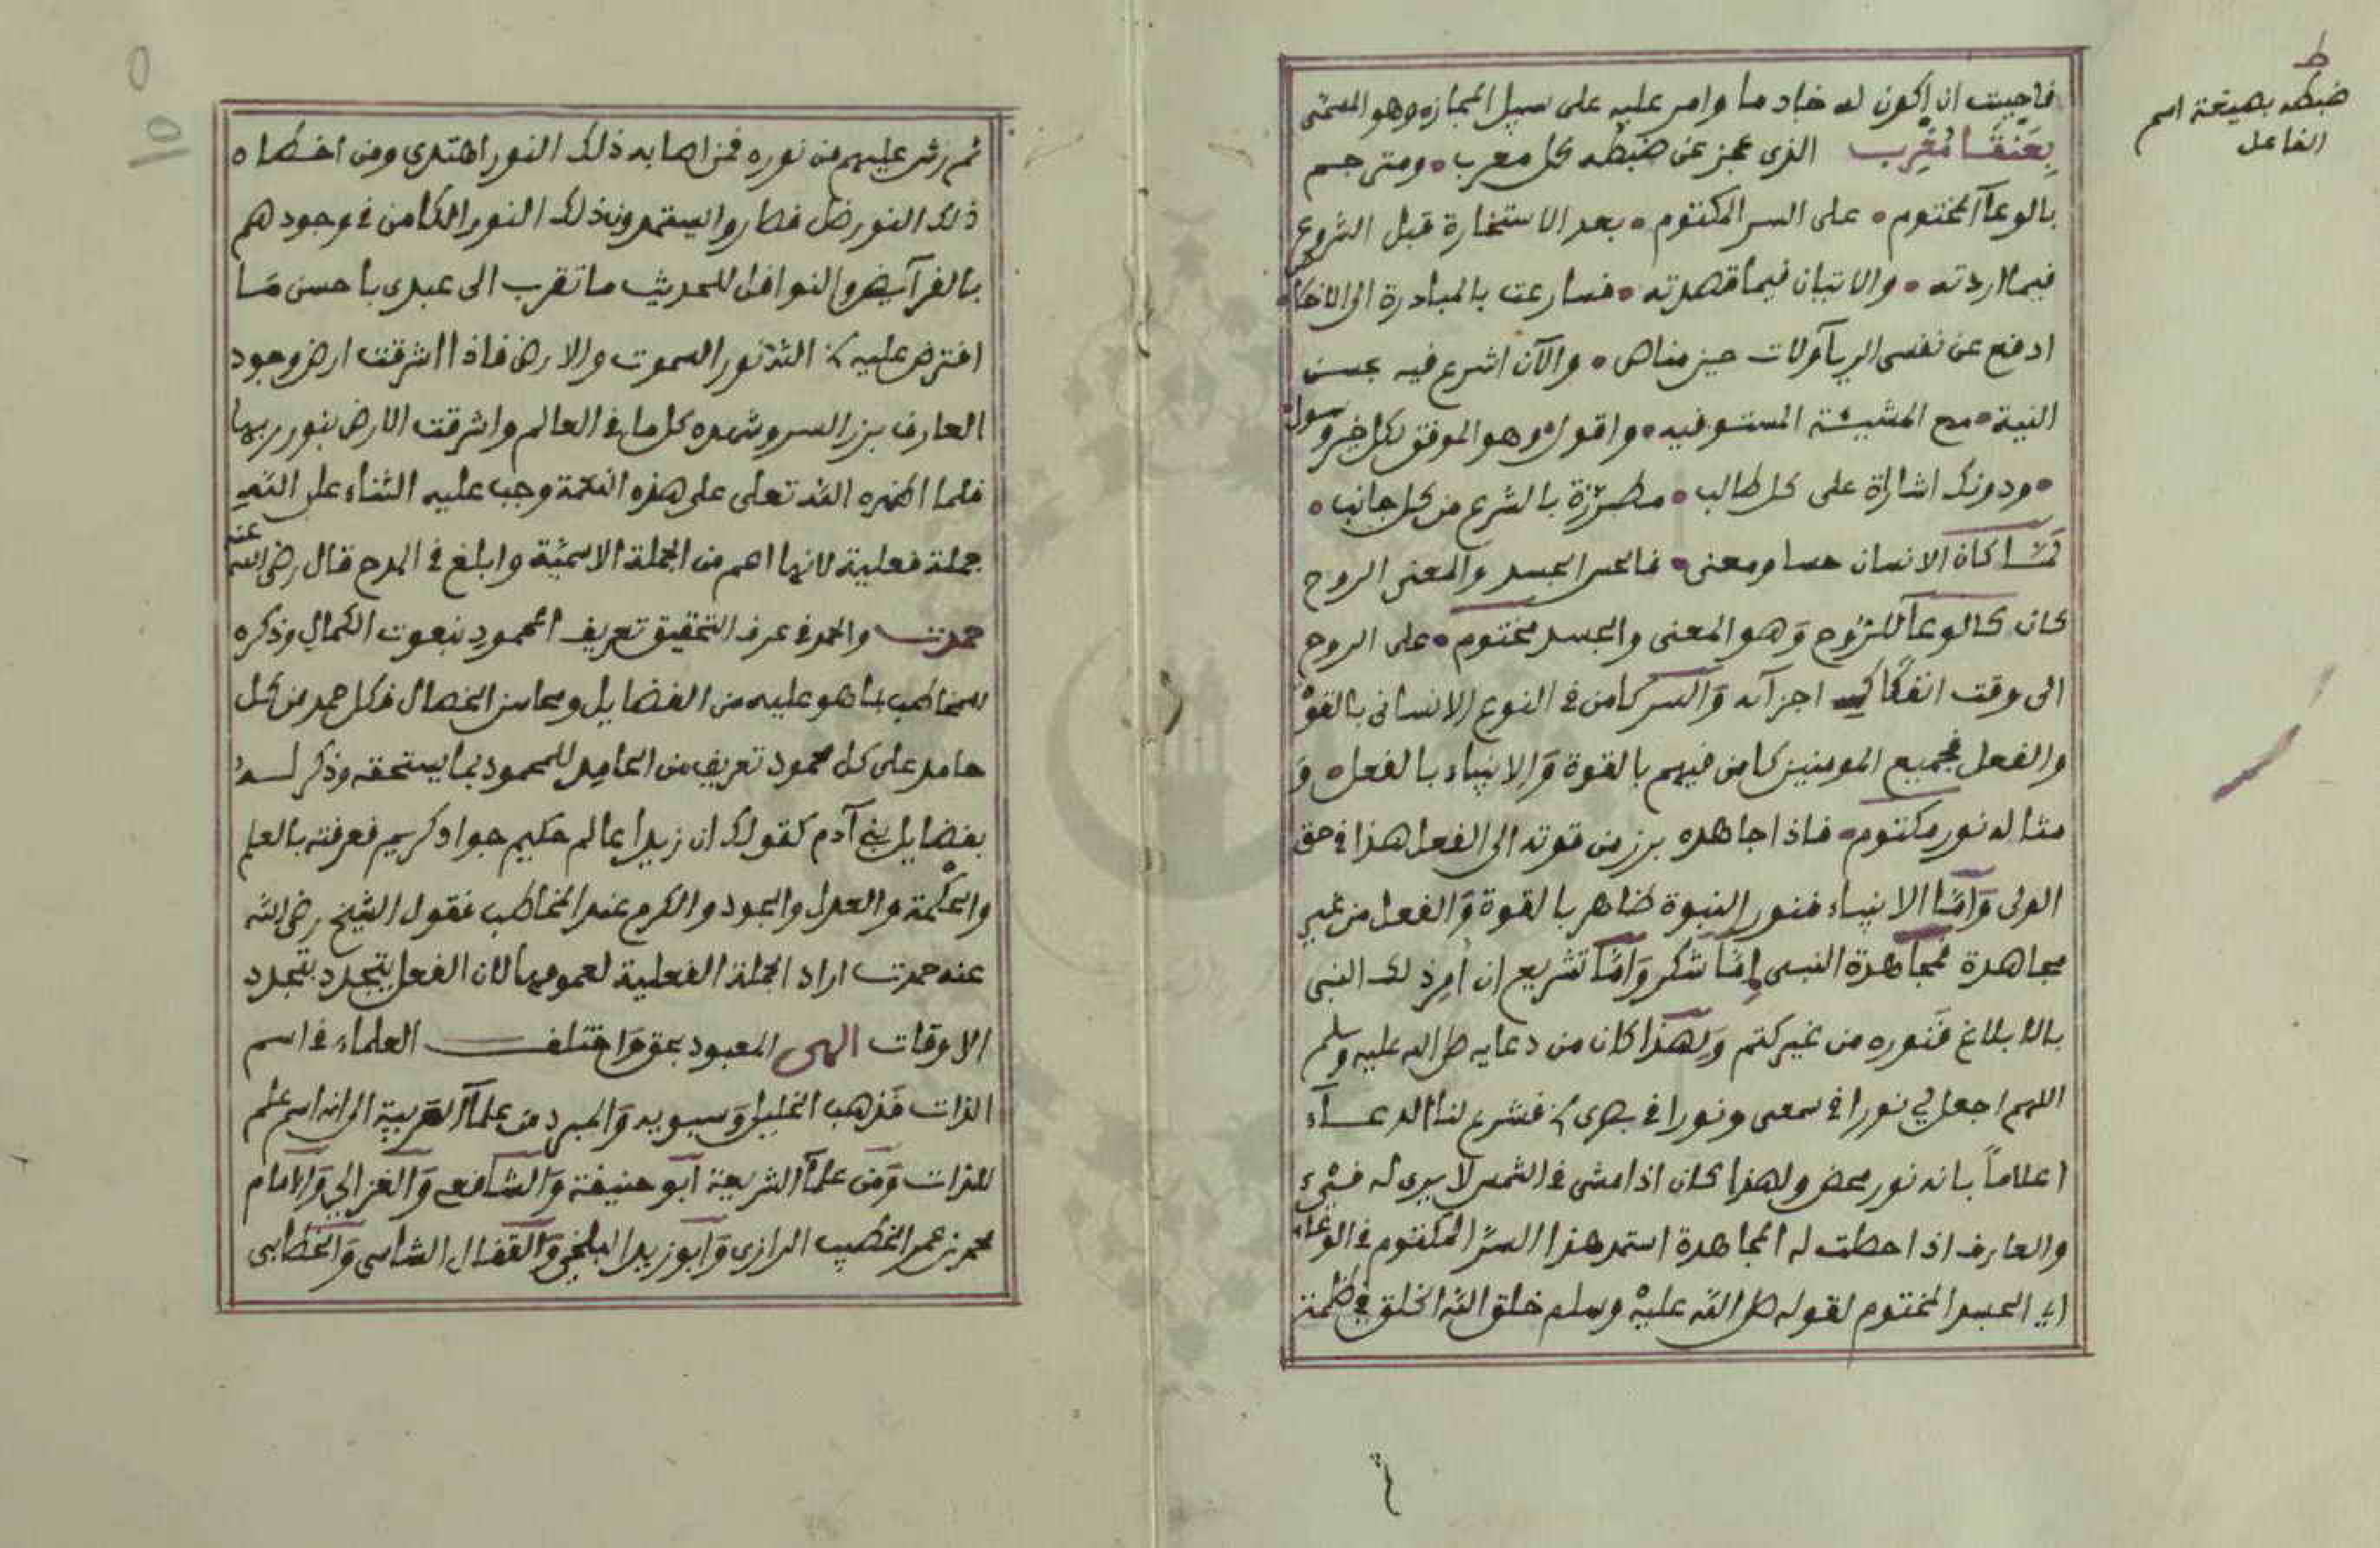 فاجبت ان اكون له خادما وامر عليه على سبيل المجازه وهو المسمى
بعنقا مُغْرِب الذى عجز عن ضبطه كل معرب • ومترجم
ط
ضبطه بصيغة اسم
الفاعل
بالوعآ المختوم • على السر المكتوم • بعد الاستخارة قبل الشروع
فيما اردته • والاتيان فيما قصدته • فسارعت بالمبادرة الى
ادفع عن نفسى الريآ ولات حين مناص • والآن اشرع فيه بحسن
النية • مع المشيئة المستوفيه • واقول وهو الموفق لكل خير وسول
• ودونك اشاراة على كل طالب • مطرزة بالشرع من كل جانب •
لمَّا كان الانسان حسا ومعنى • فالحس الجسد والمعنى الروح
كان كالوعآ للروح وَهو المعنى والجسد مختوم • على الروح
الى وقت انفكاك اجزآئه وَالسر كامن فى النوع الانسانى بالقوة
والفعل فجميع المومنين كامن فيهم بالقوة وَالانبياء بالفعل • وَ
مثاله نور مكتوم • فاذا جاهده برز من قوته الى الفعل هذا فى حق
الولى وَامَّا الانبياء فنور النبوة ظاهر بالقوة وَالفعل من غير
مجاهدة فمجاهدة النبى إمَّا شكر وَامَّا تشريع ان أُمِرَ ذلك النبى
بالابلاغ فَنوره من غير كتم وَلهذا كان من دعايه صلى الله عليه وسلم
اللهم اجعل لي نورا فى سمعى ونورا فى بصرى فشرع لنا الدعآء
اعلاماً بانه نور محض ولهذا كان اذا مشى فى الشمس لا يرى له فىء
والعارف اذا حصلت له المجاهدة استمد هذا السرّ المكتوم فى الوعاء
اى الجسد المختوم لقوله صلى الله عليه وسلم خلق الله الخلق فى ظلمة
ثم رش عليهم من نوره فمن اصابه ذلك النور اهتدى ومن اخطاه
ذلك النور ضل فصاروا ليستمدون ذلك النور الكامن فى وجودهم
بالفرآيض والنوافل للحديث ما تقرب الى عبدى باحسن مَا
افترض عليه الله نور السموت والارض فاذا اشرقت ارض وجود
العارف برز السر وشهده كل ما فى العالم واشرقت الارض بنور ربها
فلما اظهره الله تعلى على هذه النعمة وجب عليه الثناء على الله
جملة فعلية لانها اهم من الجملة الاسميّة وابلغ فى المدح قال رضى الله عنه
حمدت والحمد فى عرف التحقيق تعريف المحمودِ بنعوت الكمال وذكره
للمخاطب بما هو عليه من الفضايل ومحاسن الخصال فكل حمد من كل
حامد على كل محمود تعريف من الحامِد للمحمود بما يستحقه وذكر له
بفضايل بنى آدم كقولك ان زيدا عالم حكيم جواد كريم فعرفته بالعلم
والحكمة والعدل والجود والكرم عند المخاطب فقول الشيخ رضى الله
عنه حمدت اراد الجملة الفعلية لعمومها لان الفعل يتجدد بتجدد
الاوقات الهى المعبود بحق وَاختلف العلماء فى اسم
الذات فَذهب الخليل وَسيبويه وَالمبرد من علمآ العَربية الى انه اسم علم
للذات وَمن علمآ الشريعة ابو حنيفة وَالشافعى وَالغزالي وَالامام
محمد بن عمر الخطيب الرازى وَابو زيد البلخى وَالقفال الشاسى وَالخطابى